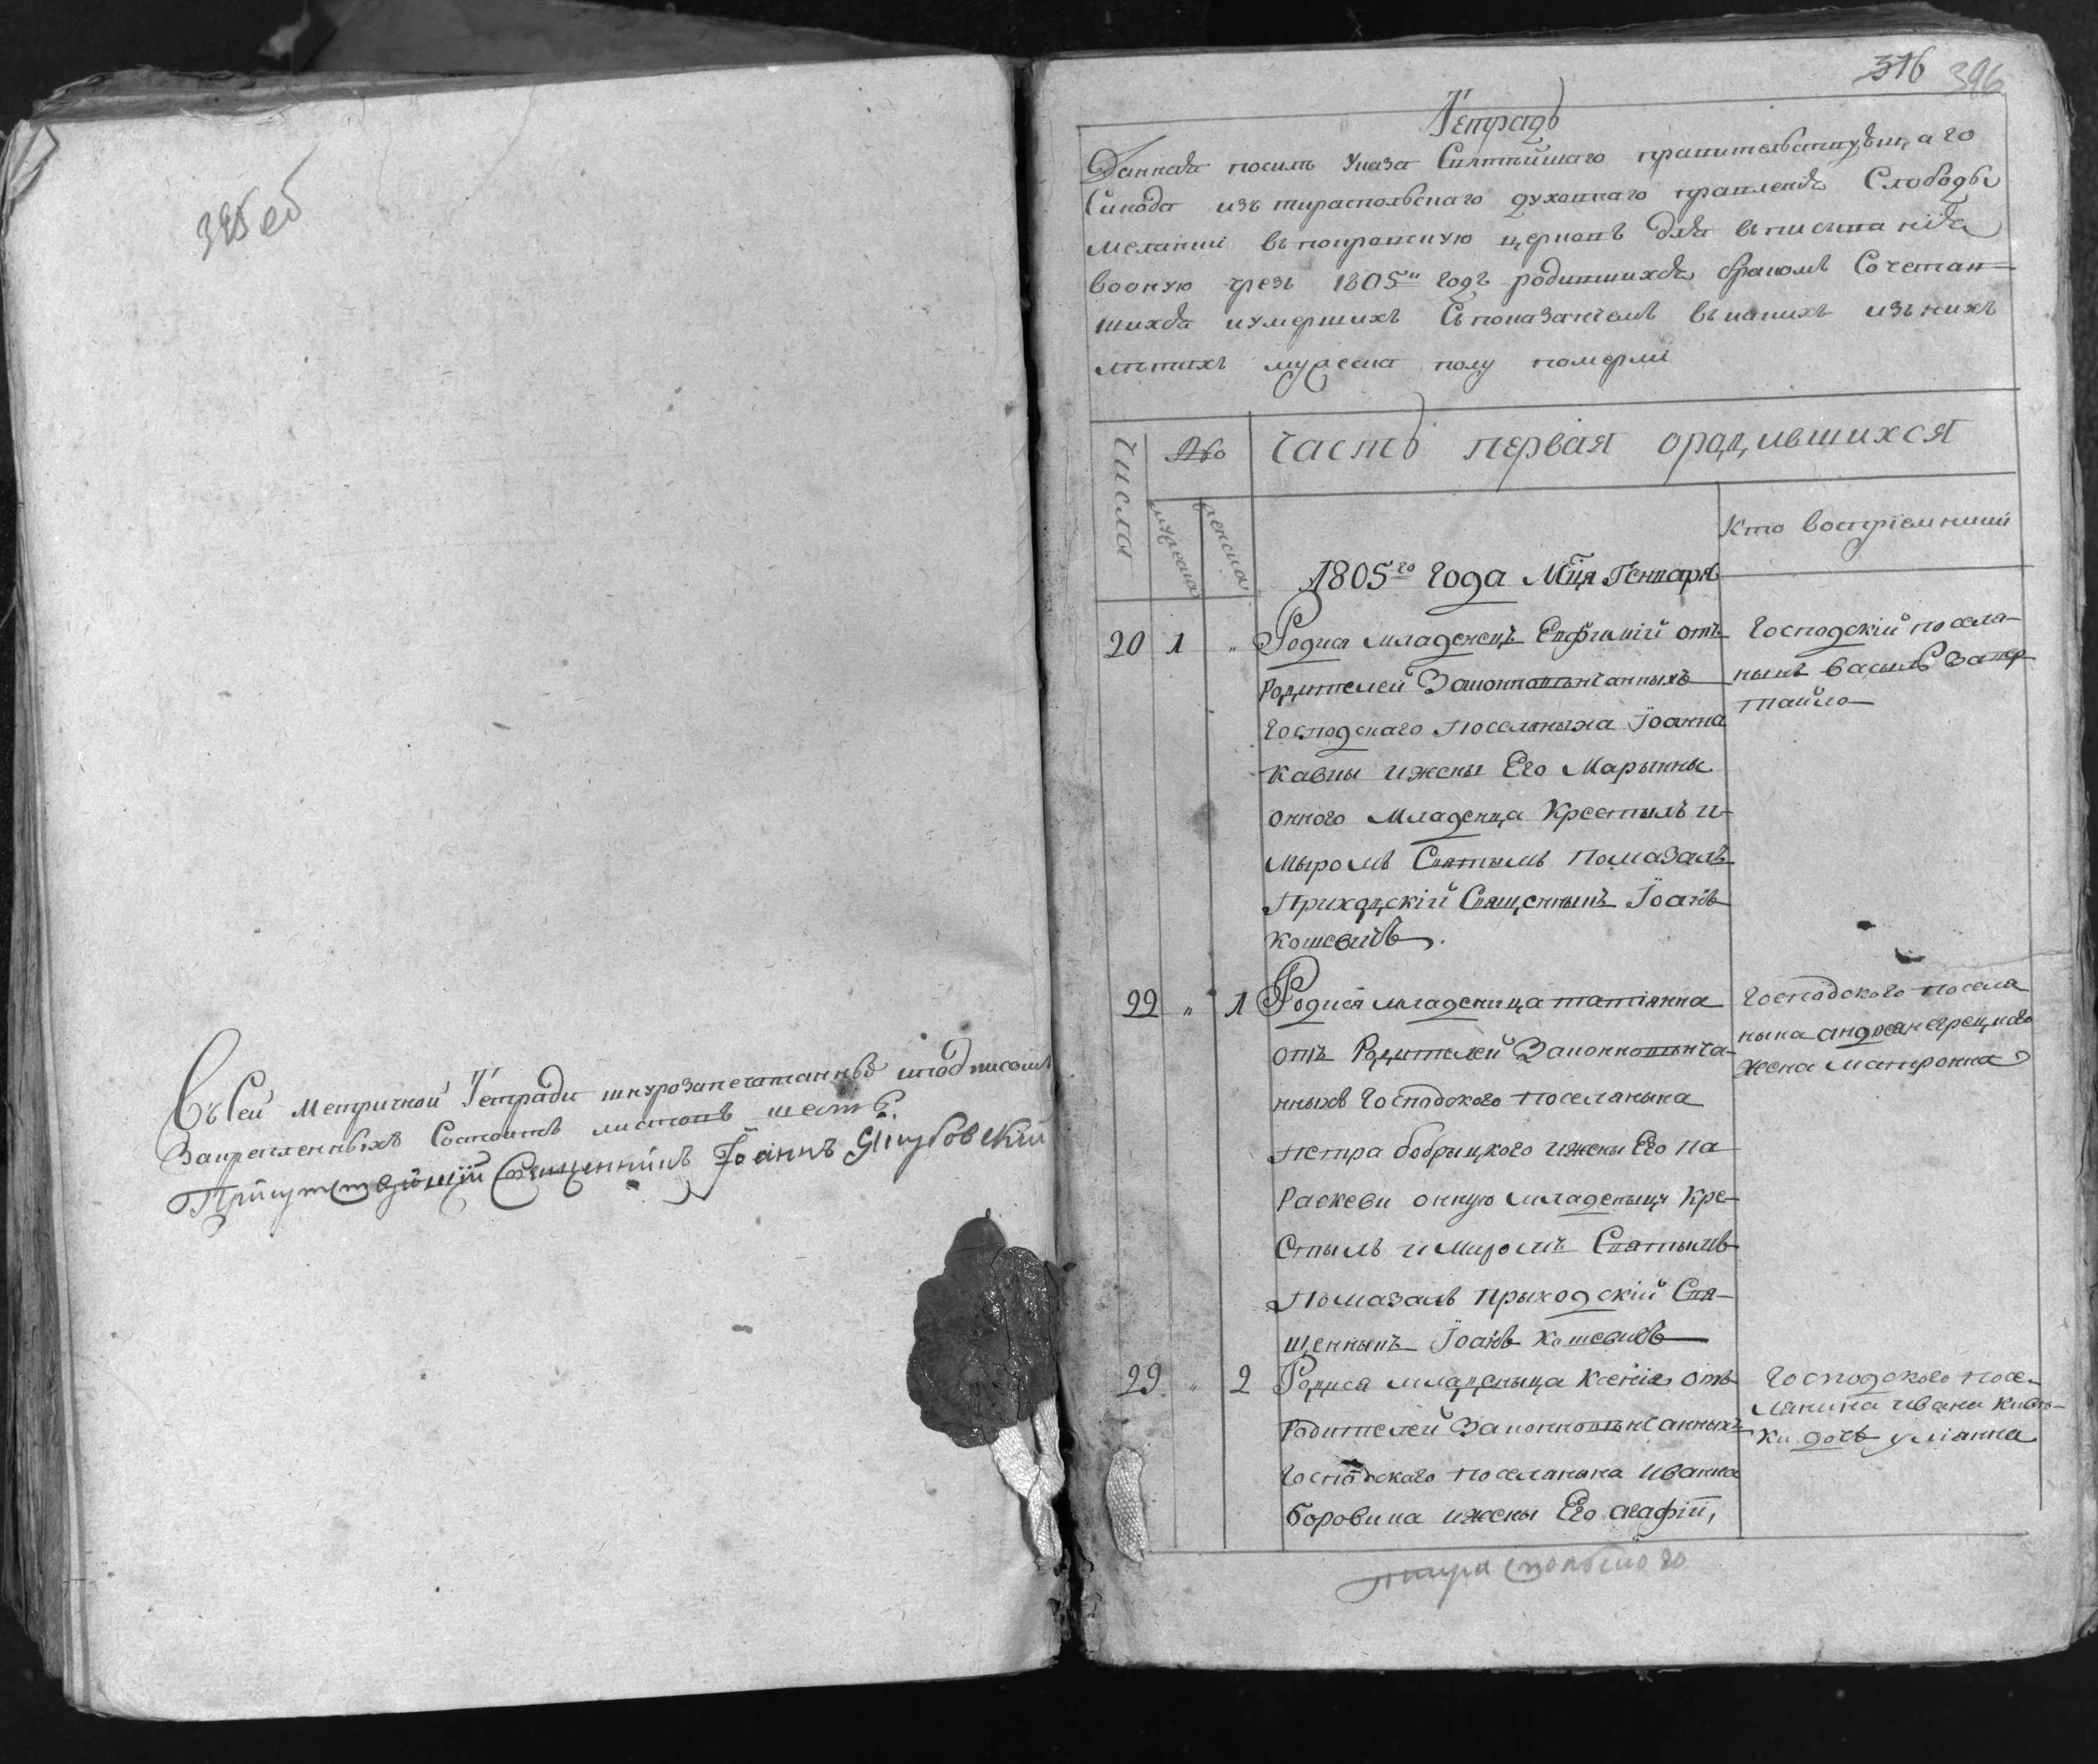 395 об
Въ Сей Метричной Тетради шнурозапечатанныъ иподписомъ
Закрепленныхъ Состоитъ листовъ шесть.
Присутствующій Священникъ Іоаннъ Якубовскій
316 396
Тетрадь
Данная посилъ Указа Святѣйшаго правителствующаго
Синода изъ тираспольскаго духовнаго правленія Слободы
Мелании въ покровскую церковь для вписыванія
вооную чрезъ 1805й годъ родившихся бракомъ Сочетав=
шихся иумершихъ Съпоказаніемъ въкакихъ изънихъ
лѣтахъ мужеска полу померли
Числа
№
Часть первая ородившихся
мужеска
женска
Кто воспріемники
1805го Года Мця Генваря
20 1 "
Родися младенецъ Евфимий отъ
Родителей Законновѣнчанныхъ
Господскаго Поселяныка Іоанна
Кавцы ижены Его Марынны
онного Младенца Крестылъ и
Мыромъ Святымъ Помазалъ
Приходскій Священныкъ Іоаннъ
Кошевичъ.
Господскій посела-
ныкъ василь
22 " 1
Родися младеница татіанна
отъ Родителей Законновѣнча-
нныхъ Господского поселаныка
Петра бобрыцкого ижены Его Па
Раскеви онную младеныцу Кре-
Стылъ имиромъ Святымъ
Помазалъ прыходскій Свя-
щенныкъ Іоаннъ Кошевичъ
Господского посела
ныка андреа грецкого
жена матронна
29 " 2
Родися младеныца Ксенія отъ
Родителей Законновѣнчанныхъ
Господского поселаныка иванна
боровика ижены Его агафіи,
Господского посе-
лянина ивана
дочь улианна
тираспольского